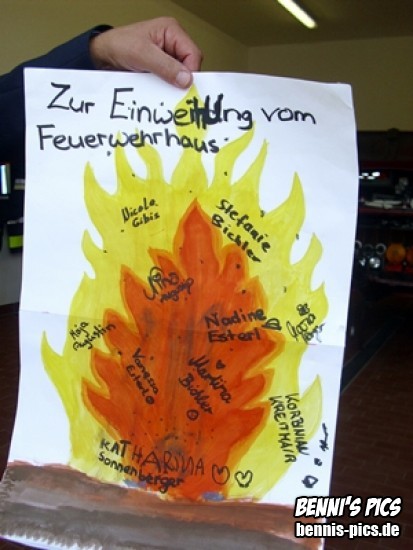 Zur Einweihung vom
Feuerwehrhaus
Nicole
Stefanie
Bichler
Nina
Nadine
Esterl
Maja
Vanessa
Esterl
Martina
Bichler
KORBINIAN
KREITMAIR
KATHARINA
Sonnenberger
BENNI'S PICS
bennis-pics.de